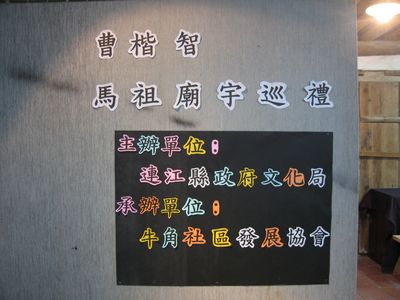 曹楷智
馬祖廟宇巡禮
主辦單位：
連江縣政府文化局
承辦單位：
牛角社區發展協會